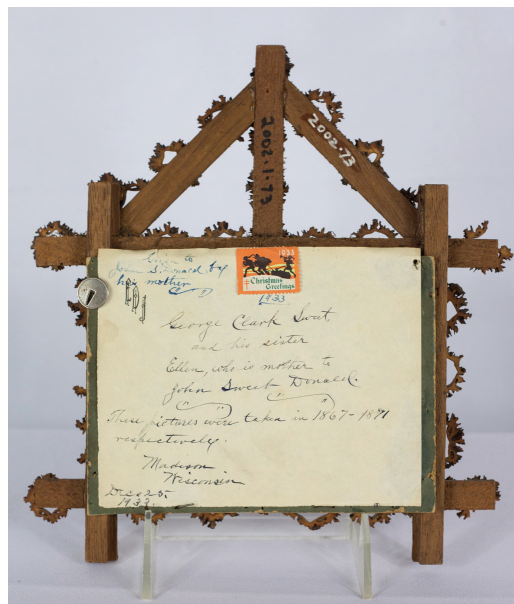 2002.1.73
2002.73
Given to
John S. Donald by
his mother
1933
Christmas
Greetings
1933
George Clark Sweet
and his sister
Ellen, who is mother to
John Sweet Donald.
These pictures were taken in 1867-1871
respectively.
Madison
Wisconsin
Dec. 25.
1933